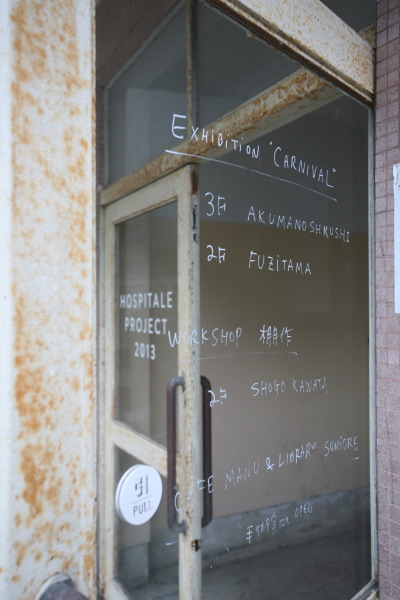 EXHIBITION "CARNIVAL"
3F AKUMANOSHRUSHI
2F FUZITAMA
HOSPITALE
PROJECT
2013
WORKSHOP 棚作
2F SHOGO KAWATA
CAFE MANU & LIBRARY SUMIORE
OPEN
引
PULL